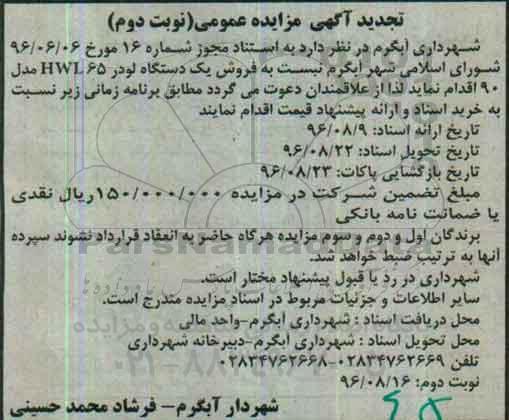 تجدید آگهی مزایده عمومی(نوبت دوم)
شهرداری آبگرم در نظر دارد به استناد مجوز شماره ۱۶ مورخ ۹۶/۰۶/۰۶
شورای اسلامی شهر آبگرم نیست به فروش یک دستگاه لودر HWL ۶۵ مدل
۹۰ اقدام نماید لذا از علاقمندان دعوت می گردد مطابق برنامه زمانی زیر نسبت
به خرید اسناد و ارائه پیشنهاد قیمت اقدام نمایند
تاریخ ارائه اسناد: ۹۶/۰۸/۹
تاریخ تحویل اسناد: ۹۶/۰۸/۲۲
تاریخ بازگشایی پاکات: ۹۶/۰۸/۲۳
مبلغ تضمین شرکت در مزایده ۱۵۰/۰۰۰/۰۰۰ریال نقدی
یا ضمانت نامه بانکی
برندگان اول و دوم و سوم مزایده هرگاه حاضر به انعقاد قرارداد نشوند سپرده
آنها به ترتیب ضبط خواهد شد.
شهرداری در رد یا قبول پیشنهاد مختار است.
سایر اطلاعات و جزئیات مربوط در اسناد مزایده مندرج است.
محل دریافت اسناد : شهرداری آبگرم-واحد مالی
محل تحویل اسناد : شهرداری آبگرم-دبیرخانه شهرداری
تلفن ۰۲۸۳۴۷۶۲۶۶۹-۰۲۸۳۴۷۶۲۶۶۸
نوبت دوم: ۹۶/۰۸/۱۶
شهردار آبگرم- فرشاد محمد حسینی
ParsNamad